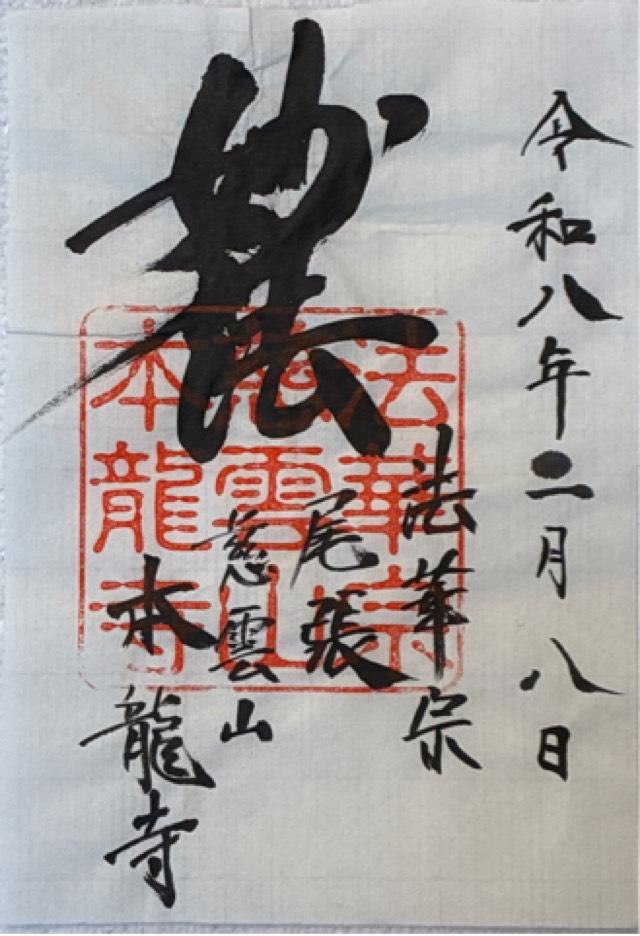 令和八年二月八日
法華宗
尾張
慈雲山
本龍寺
妙法
法華宗
慈雲山
本龍寺